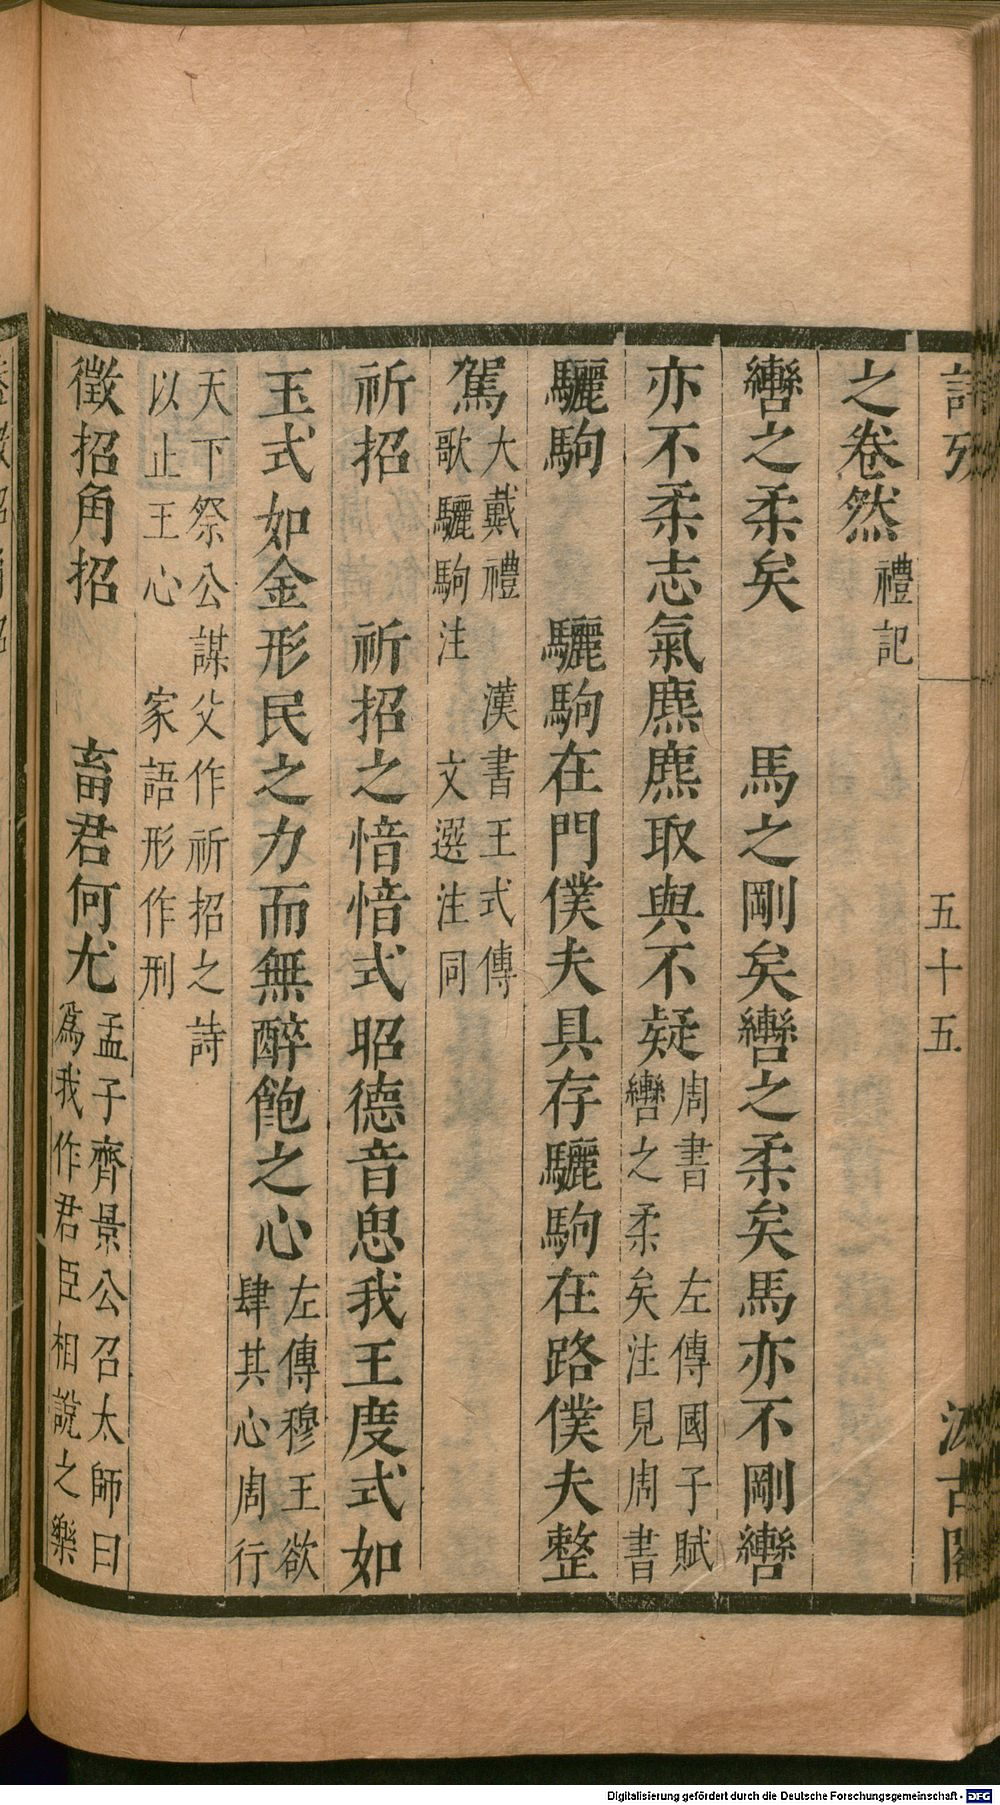 詩攷
五十五
汲古閣
之卷然禮記
轡之柔矣　馬之剛矣轡之柔矣馬亦不剛轡
亦不柔志氣麃麃取與不疑周書　左傳國子賦
轡之柔矣注見周書
驪駒　驪駒在門僕夫具存驪駒在路僕夫整
駕大戴禮　漢書王式傳
歌驪駒注　文選注同
祈招　祈招之愔愔式昭德音思我王度式如
玉式如金形民之力而無醉飽之心左傳穆王欲
肆其心周行
天下祭公謀父作祈招之詩
以止王心　家語形作刑
徵招角招　畜君何尤孟子齊景公召太師曰
爲我作君臣相說之樂
Digitalisierung gefördert durch die Deutsche Forschungsgemeinschaft - DFG